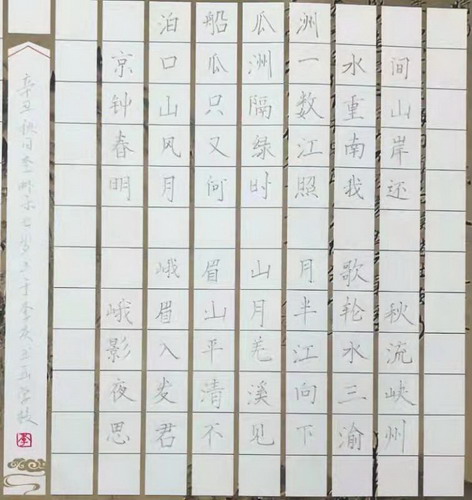 泊船瓜洲
京口瓜洲一水间
钟山只隔数重山
春风又绿江南岸
明月何时照我还
峨眉山月歌
峨眉山月半轮秋
影入平羌江水流
夜发清溪向三峡
思君不见下渝州
辛丑秋月李一 七岁 于 学校
李